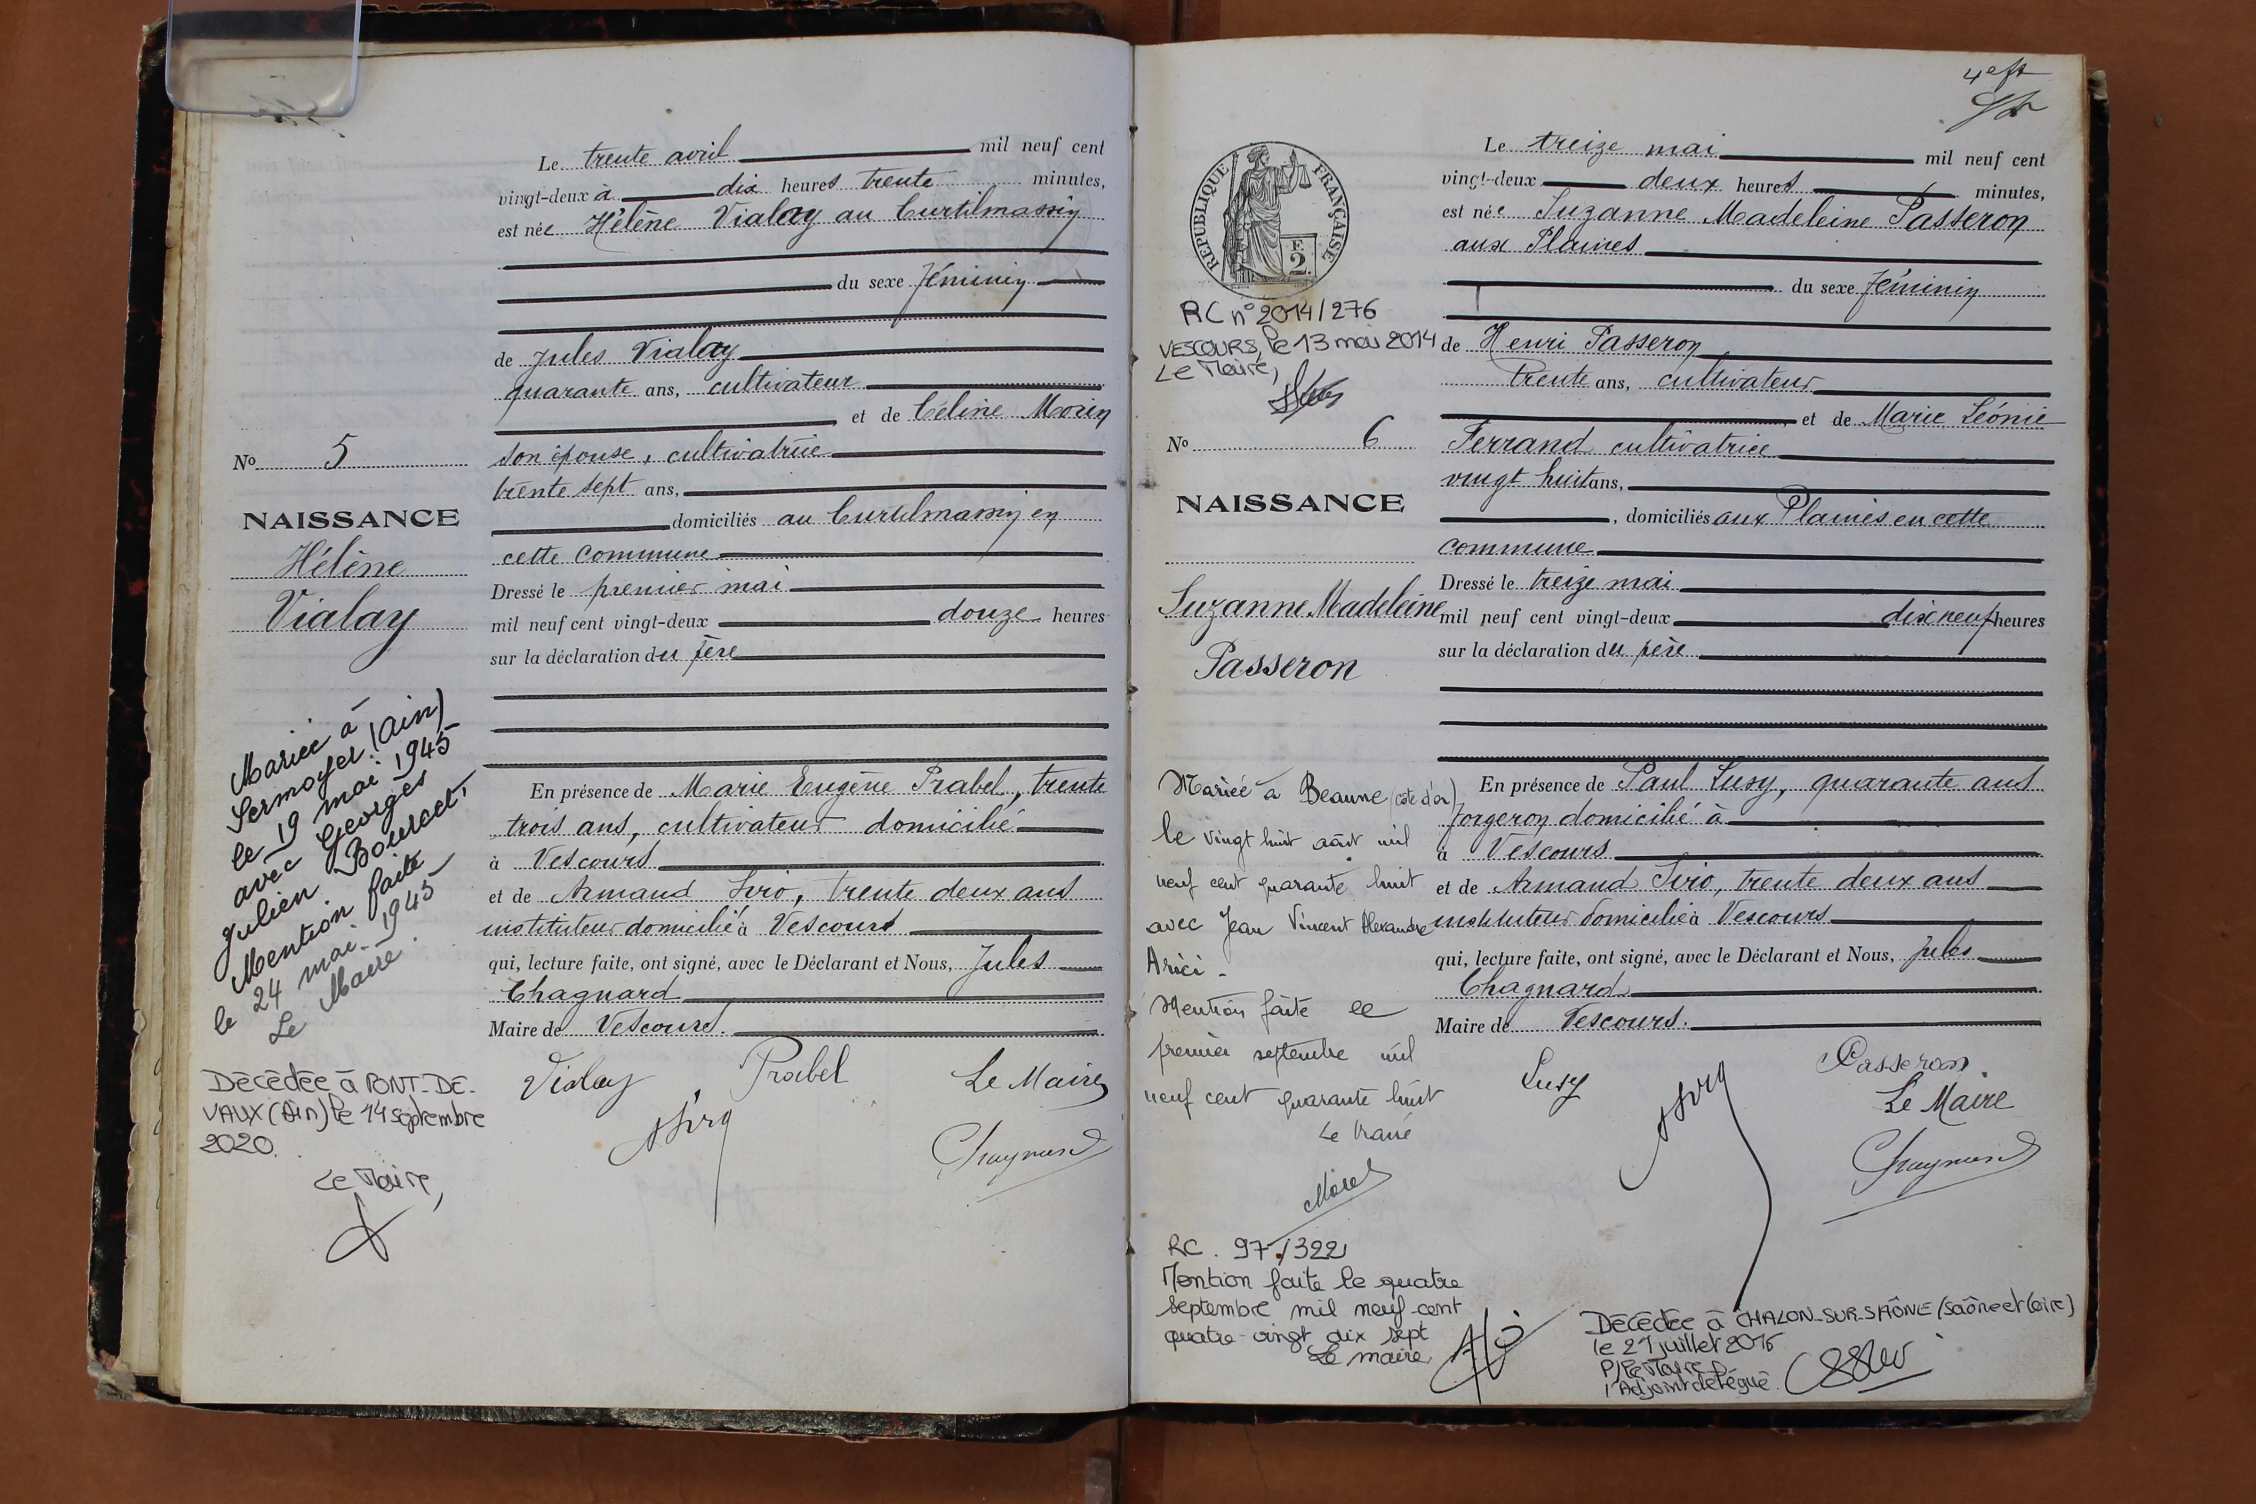 Le trente avril mil neuf cent
vingt-deux à dix heures trente minutes,
est née Hélène Vialay au Curtilmassin
du sexe féminin
de Jules Vialay
quarante ans, cultivateur
et de Céline Morin
son épouse, cultivatrice
trente sept ans,
domiciliés au Curtilmassin en
cette commune
Dressé le premier mai
mil neuf cent vingt-deux douze heures
sur la déclaration du père
En présence de Marie Eugène Prabel, trente
trois ans, cultivateur domicilié
à Vescours
et de Armand Siro, trente deux ans
instituteur domicilié à Vescours
qui, lecture faite, ont signé, avec le Déclarant et Nous, Jules
Chagnard
Maire de Vescours.
Vialay Prabel Le Maire
Chagnard
No 5
NAISSANCE
Hélène
Vialay
Mariée à
Sermoyer (Ain)
le 19 mai 1945
avec Georges
Julien
Mention faite
le 24 mai 1945
Le Maire.
Décédée à PONT-DE-
VAUX (Ain) le 14 septembre
2020.
Le Maire,
RÉPUBLIQUE FRANÇAISE
E
2
RC n° 2014/276
VESCOURS, le 13 mai 2014
Le Maire,
No 6
NAISSANCE
Suzanne Madeleine
Passeron
Mariée à Beaune (côte d'or)
le vingt huit août mil
neuf cent quarante huit
avec Jean Vincent Alexandre
Arici.
Mention faite le
premier septembre mil
neuf cent quarante huit
Le Maire
Morel
RC. 97/322
Mention faite le quatre
septembre mil neuf cent
quatre-vingt dix sept
Le maire
Le treize mai mil neuf cent
vingt-deux deux heures minutes,
est née Suzanne Madeleine Passeron
aux Plaines
du sexe féminin
de Henri Passeron
trente ans, cultivateur
et de Marie Léonie
Ferrand cultivatrice
vingt huit ans,
, domiciliés aux Plaines en cette
commune
Dressé le treize mai
mil neuf cent vingt-deux dix neuf heures
sur la déclaration du père
En présence de Paul Lusy, quarante ans
forgeron domicilié à
à Vescours
et de Armand Siro, trente deux ans
instituteur domicilié à Vescours
qui, lecture faite, ont signé, avec le Déclarant et Nous, Jules
Chagnard
Maire de Vescours.
Lusy Passeron
Le Maire
Chagnard
Décédée à CHALON-SUR-SAÔNE (Saône et Loire)
le 21 juillet 2016
P/Le Maire
l'Adjoint délégué